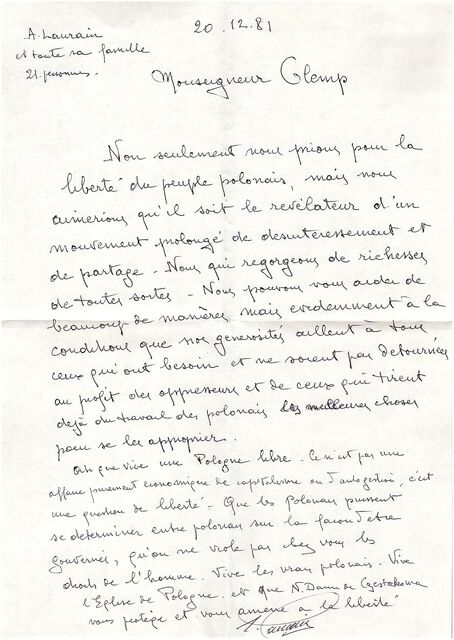 A. Laurain
et toute sa famille
21 personnes.
20.12.81
Monseigneur Glemp
Non seulement nous prions pour la
liberté du peuple polonais, mais nous
aimerions qu'il soit le revélateur d'un
mouvement prolongé de desinteressement et
de partage - Nous qui regorgeons de richesses
de toutes sortes - Nous pouvons vous aider de
beaucoup de manières mais evidemment à la
condition que nos generosités aillent à tous
ceux qui ont besoin et ne soient pas detournées
au profit des oppresseurs et de ceux qui tirent
dejà du travail des polonais les meilleures choses
pour se les approprier.
Ah que vive une Pologne libre. Ce n'est pas une
affaire purement economique de capitalisme ou d'autogestion, c'est
une question de liberté - Que les Polonais puissent
se determiner entre polonais sur la façon d'etre
gouvernés, qu'on ne viole pas chez vous les
droits de l'homme. Vive les vrais polonais. Vive
l'Eglise de Pologne. et que N. Dame de Czestokowa
vous protège et vous amène à la liberté
A Laurain